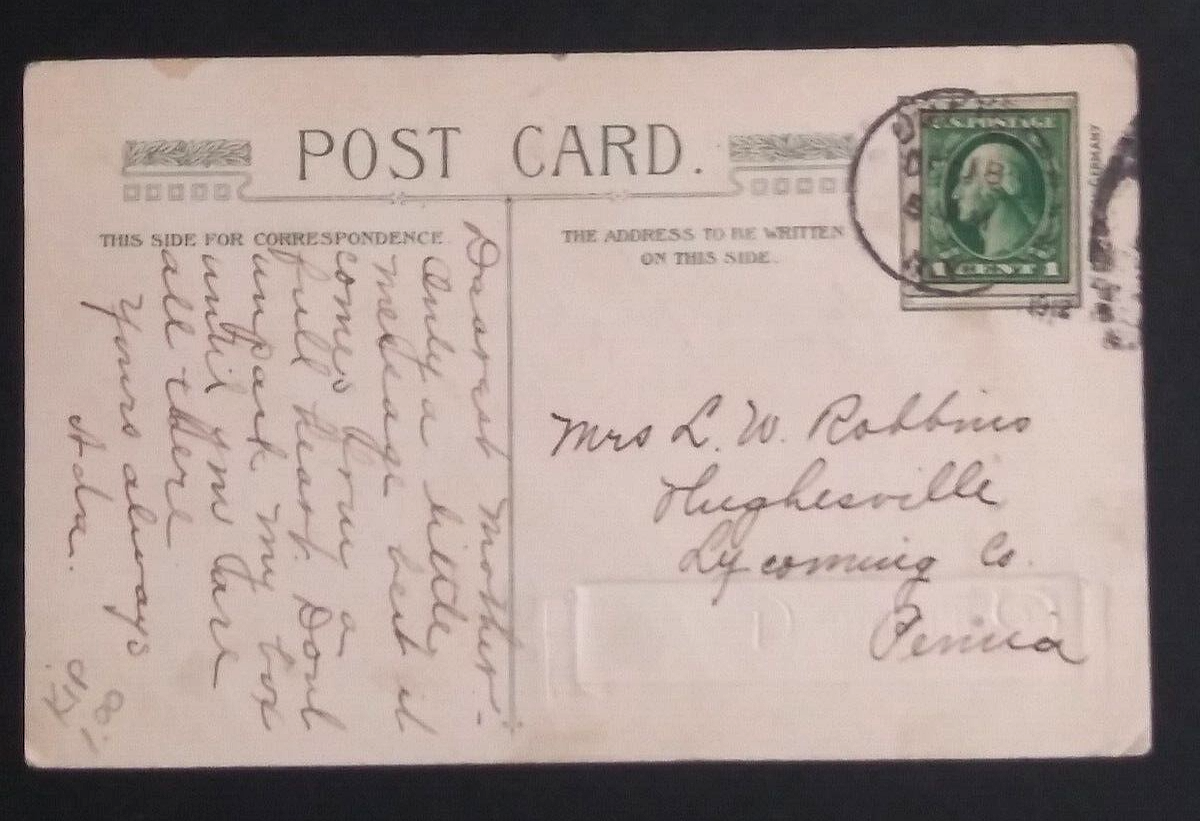 POST CARD.
THIS SIDE FOR CORRESPONDENCE.
THE ADDRESS TO BE WRITTEN
ON THIS SIDE.
U.S. POSTAGE
1 CENT 1
GERMANY
1912
Dearest Mother-
Only a little
message but it
comes from a
full heart. Dont
unpack my box
until you are
all there
Yours always
Ada.
Mrs L. W. Robbins
Hughesville
Lycoming Co.
Penna